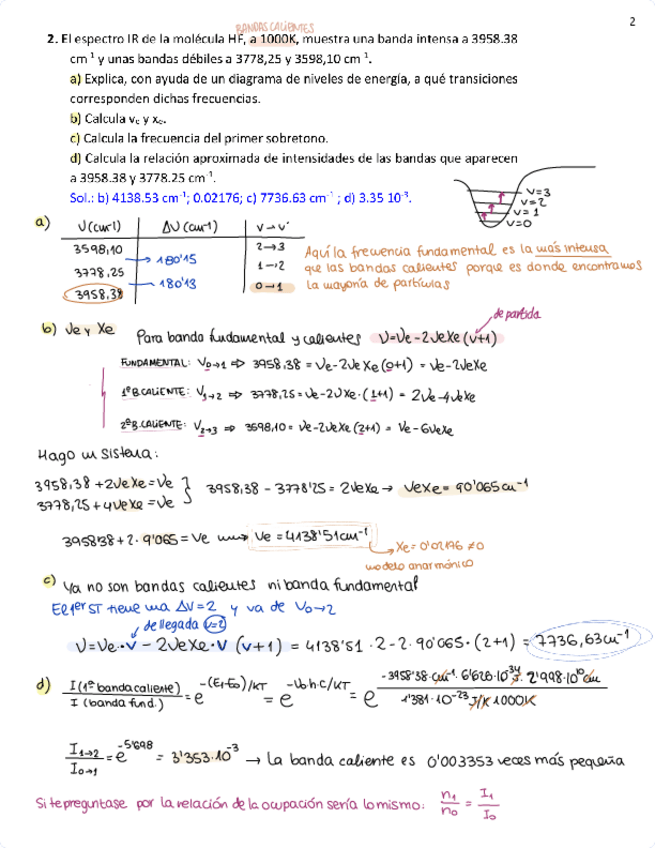 2
BANDAS CALIENTES
2. El espectro IR de la molécula HF, a 1000K, muestra una banda intensa a 3958.38
cm⁻¹ y unas bandas débiles a 3778,25 y 3598,10 cm⁻¹.
a) Explica, con ayuda de un diagrama de niveles de energía, a qué transiciones
corresponden dichas frecuencias.
b) Calcula νe y xe.
c) Calcula la frecuencia del primer sobretono.
d) Calcula la relación aproximada de intensidades de las bandas que aparecen
a 3958.38 y 3778.25 cm⁻¹.
Sol.: b) 4138.53 cm⁻¹; 0.02176; c) 7736.63 cm⁻¹ ; d) 3.35 10⁻³.
V=3
V=2
V=1
V=0
a) ν(cm-1) Δν(cm-1) v→v'
3598,10 2→3
→ 180'15
3778,25 1→2
→ 180'13
3958,38 0→1
Aquí la frecuencia fundamental es la más intensa
que las bandas calientes porque es donde encontramos
la mayoría de partículas
b) νe y Xe
de partida
Para banda fundamental y calientes ν=νe-2νeXe(v+1)
FUNDAMENTAL: V0→1 ⇒ 3958,38 = νe-2νeXe(0+1) = νe-2νeXe
1ªB.CALIENTE: V1→2 ⇒ 3778,25=νe-2νXe·(1+1) = 2νe-4νeXe
2ªB.CALIENTE: V2→3 ⇒ 3598,10= νe-2νeXe(2+1) = νe-6νeXe
Hago un sistema:
3958,38 +2νeXe=νe
3778,25+4νeXe=νe } 3958,38 - 3778'25 = 2νeXe → νeXe= 90'065cm⁻¹
3958'38+2· 9'065=νe → νe = 4138'51cm⁻¹
Xe= 0'02176 ≠0
modelo anarmónico
c) Ya no son bandas calientes ni banda fundamental
El 1er ST tiene una Δν=2 y va de V0→2
de llegada (v=2)
ν=νe·v - 2νeXe·v (v+1) = 4138'51 ·2-2·90'065·(2+1) = 7736,63cm⁻¹
d) I(1ªbanda caliente) / I (banda fund.) = e^-(E1-E0)/KT = e^-ν0·h·c/KT = e^(-3958'38·cm⁻¹· 6'626·10³⁴J·s· 2'998·10¹⁰cm/s / 1'381·10⁻²³J/K·1000K)
I1→2 / I0→1 = e^-5'698 = 3'353·10⁻³ → La banda caliente es 0'003353 veces más pequeña
Si te preguntase por la relación de la ocupación sería lo mismo: n1/n0 = I1/I0